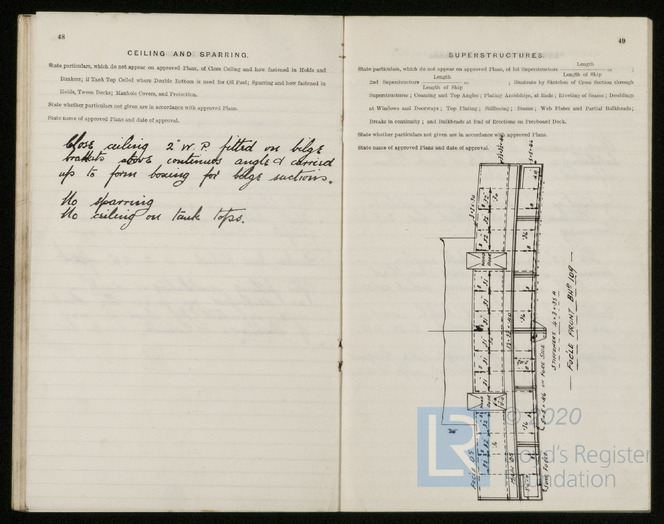 48
CEILING AND SPARRING.
State particulars, which do not appear on approved Plans, of Close Ceiling and how fastened in Holds and
Bunkers; if Tank Top Ceiled where Double Bottom is used for Oil Fuel; Sparring and how fastened in
Holds, Tween Decks; Manhole Covers, and Protection.
State whether particulars not given are in accordance with approved Plans.
State name of approved Plans and date of approval.
Close ceiling 2" W.P. fitted on bilge
brackets above continuous angle & carried
up to form boxing for bilge suctions.
No sparring
No ceiling on tank tops.
49
SUPERSTRUCTURES.
State particulars, which do not appear on approved Plans, of 1st Superstructure Length / Length of Ship = ;
2nd Superstructure Length / Length of Ship = ; Illustrate by Sketches of Cross Section through
Superstructures; Coaming and Top Angles; Plating Amidships, at Ends; Riveting of Seams; Doublings
at Windows and Doorways; Top Plating; Stiffening; Seams; Web Plates and Partial Bulkheads;
Breaks in continuity; and Bulkheads at End of Erections on Freeboard Deck.
State whether particulars not given are in accordance with approved Plans.
State name of approved Plans and date of approval.
FOCSLE FRONT BHD 109
STIFFENERS
MAIN DK
FOCSLE DK
© 2020
LR
Lloyd's Register
Foundation